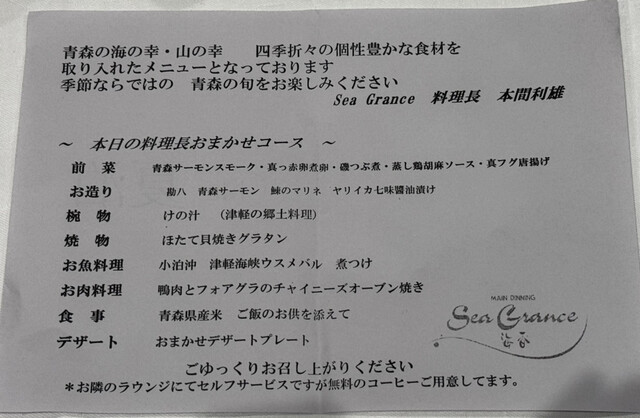 青森の海の幸・山の幸　四季折々の個性豊かな食材を
取り入れたメニューとなっております
季節ならではの　青森の旬をお楽しみください
Sea Grance　料理長　本間利雄
～　本日の料理長おまかせコース　～
前　菜　青森サーモンスモーク・真っ赤卵煮卵・磯つぶ煮・蒸し鶏胡麻ソース・真フグ唐揚げ
お造り　勘八　青森サーモン　鰊のマリネ　ヤリイカ七味醤油漬け
椀　物　けの汁　（津軽の郷土料理）
焼　物　ほたて貝焼きグラタン
お魚料理　小泊沖　津軽海峡ウスメバル　煮つけ
お肉料理　鴨肉とフォアグラのチャイニーズオーブン焼き
食　事　青森県産米　ご飯のお供を添えて
デザート　おまかせデザートプレート
MAIN DINNING
Sea Grance
ごゆっくりお召し上がりください
＊お隣のラウンジにてセルフサービスですが無料のコーヒーご用意してます。